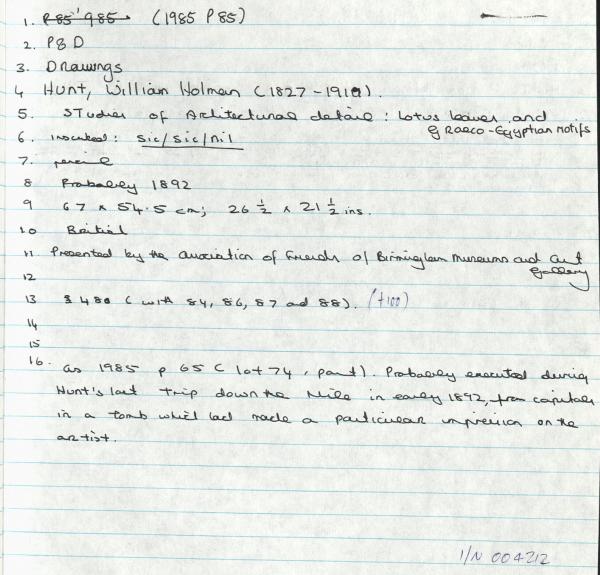 1. P85'985 (1985 P85)
2. P&D
3. Drawings
4 Hunt, William Holman (1827-1910).
5. Studies of Architectural detail: lotus leaves and Graeco-Egyptian motifs
6. inscribed: sic/sic/nil
7. pencil
8 Probably 1892
9 67 x 54.5 cm; 26 1/2 x 21 1/2 ins.
10 British
11 Presented by the Association of Friends of Birmingham Museums and Art Gallery
12
13 £480 (with 84, 86, 87 and 88). (+100)
14
15
16. as 1985 P 65 (lot 74, part). Probably executed during
Hunt's last trip down the Nile in early 1892, from capitals
in a tomb which had made a particular impression on the
artist.
I/N 004212